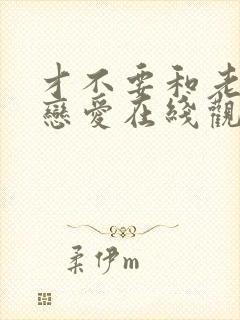 才不要和老
戀愛在綫觀
柔伊m